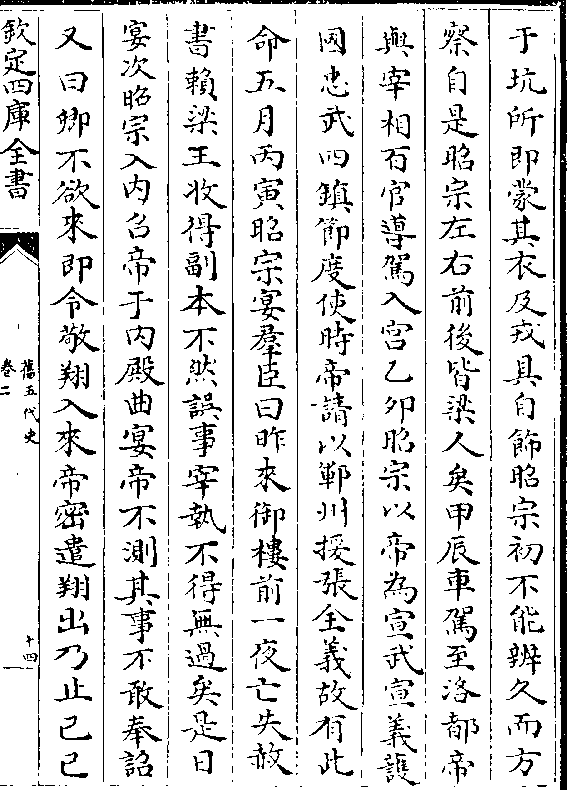 于坑所即蒙其衣及戎具自飾昭宗初不能辨久而方
察自是昭宗左右前後皆梁人矣甲辰車駕至洛都帝
與宰相百官導駕入宫乙卯昭宗以帝為宣武宣義護
國忠武四鎮節度使時帝請以鄆州授張全義故有此
命五月丙寅昭宗宴羣臣曰昨來御樓前一夜亡失赦
書賴梁王收得副本不然誤事宰執不得無過矣是日
宴次昭宗入内召帝于内殿曲宴帝不測其事不敢奉詔
又曰卿不欲來即令敬翔入來帝密遣翔出乃止己巳
欽定四庫全書
舊五代史
卷二
十四